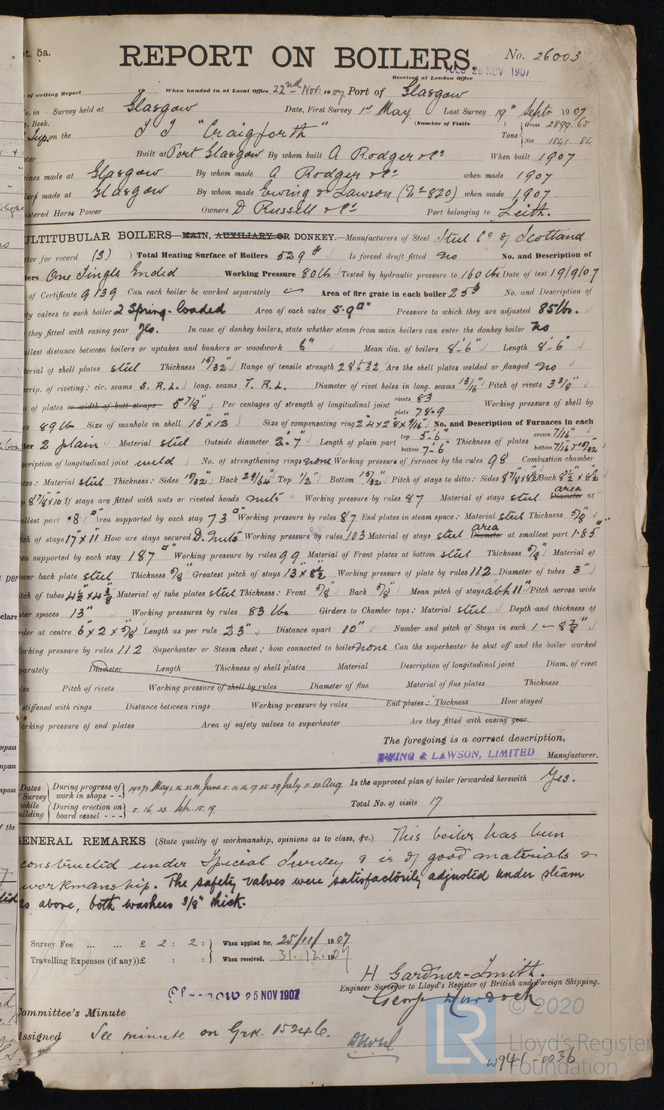 pt. 5a.
REPORT ON BOILERS.
No. 26003
Received at London Office
TUES 26 NOV 1907
of writing Report When handed in at Local Office 22nd Nov. 1907 Port of Glasgow
in Survey held at Glasgow Date, First Survey 1st May Last Survey 19th Septr 1907
Book. (Number of Visits
on the "Craigforth" Tons Gross 2899.65 Net 1841.84
Built at Port Glasgow By whom built A Rodger & Co When built 1907
ines made at Glasgow By whom made A Rodger & Co when made 1907
made at Glasgow By whom made Ewing & Lawson (No 820) when made 1907.
istered Horse Power Owners D Russell & Co Port belonging to Leith.
ULTITUBULAR BOILERS—MAIN, AUXILIARY OR DONKEY.—Manufacturers of Steel Steel Co of Scotland
ter for record (S) Total Heating Surface of Boilers 529 Is forced draft fitted no No. and Description of
lers One Single Ended Working Pressure 80 lb Tested by hydraulic pressure to 160 lbs Date of test 19/9/07
of Certificate 9139 Can each boiler be worked separately Area of fire grate in each boiler 25 No. and Description of
ty valves to each boiler 2 Spring-loaded Area of each valve 5.9" Pressure to which they are adjusted 85 lbs.
they fitted with easing gear Yes. In case of donkey boilers, state whether steam from main boilers can enter the donkey boiler no
llest distance between boilers or uptakes and bunkers or woodwork 6" Mean dia. of boilers 8'-6" Length 8'-6"
terial of shell plates steel Thickness 15/32" Range of tensile strength 28 to 32 Are the shell plates welded or flanged no
scrip. of riveting: cir. seams S.R.L. long. seams T.R.L. Diameter of rivet holes in long. seams 13/16" Pitch of rivets 3 3/8"
of plates or width of butt straps 5 7/8" Per centages of strength of longitudinal joint rivets 83 plate 78.9 Working pressure of shell by
89 lb Size of manhole in shell 16" x 12" Size of compensating ring No. and Description of Furnaces in each
ler 2 plain Material steel Outside diameter 2'-7" Length of plain part top 5'-6" bottom 7'-6" Thickness of plates crown 7/16" bottom
cription of longitudinal joint weld No. of strengthening rings none Working pressure of furnace by the rules 98 Combustion chamber
tes: Material steel Thickness: Sides 15/32" Back 29/64" Top 1/2" Bottom 15/32" Pitch of stays to ditto: Sides Back 8 1/2" x 8 1/2"
If stays are fitted with nuts or riveted heads nuts Working pressure by rules 87 Material of stays steel Diameter area at
llest part Area supported by each stay 73" Working pressure by rules 87 End plates in steam space: Material steel Thickness 5/8"
tch of stays 17" x 11" How are stays secured D. nuts Working pressure by rules 103 Material of stays steel Diameter area at smallest part 1.85"
ea supported by each stay 187" Working pressure by rules 99 Material of Front plates at bottom steel Thickness 5/8" Material of
wer back plate steel Thickness 5/8" Greatest pitch of stays 13" x 8 1/2" Working pressure of plate by rules 112 Diameter of tubes 3"
tch of tubes 4 1/2" x 4 3/8" Material of tube plates steel Thickness: Front 5/8" Back 5/8" Mean pitch of stays abt 11" Pitch across wide
ter spaces 13" Working pressures by rules 83 lbs Girders to Chamber tops: Material steel Depth and thickness of
rder at centre 6" x 2 x 5/8" Length as per rule 23" Distance apart 10" Number and pitch of Stays in each 1 — 8 3/8"
orking pressure by rules 112 Superheater or Steam chest; how connected to boiler none Can the superheater be shut off and the boiler worked
parately Diameter Length Thickness of shell plates Material Description of longitudinal joint Diam. of rivet
les Pitch of rivets Working pressure of shell by rules Diameter of flue Material of flue plates Thickness
stiffened with rings Distance between rings Working pressure by rules End plates: Thickness How stayed
orking pressure of end plates Area of safety valves to superheater Are they fitted with easing gear
The foregoing is a correct description,
EWING & LAWSON, LIMITED Manufacturer.
Dates During progress of work in shops - - Is the approved plan of boiler forwarded herewith Yes.
Survey while building During erection on board vessel - - Total No. of visits 17
GENERAL REMARKS (State quality of workmanship, opinions as to class, &c.) This boiler has been
constructed under Special Survey & is of good materials &
workmanship. The safety valves were satisfactorily adjusted under steam
as above, both washers 3/8" thick.
Survey Fee ... ... £ 2 : 2 : When applied for, 25/11/1907
Travelling Expenses (if any) £ : : When received, 31.12.1907
H Gardner-Smith.
Engineer Surveyor to Lloyd's Register of British and Foreign Shipping.
George Murdoch
Glasgow 25 NOV 1907
Committee's Minute
Assigned See minute on Grk. 15246.
© 2020
LR
Lloyd's Register
Foundation
W941-0036